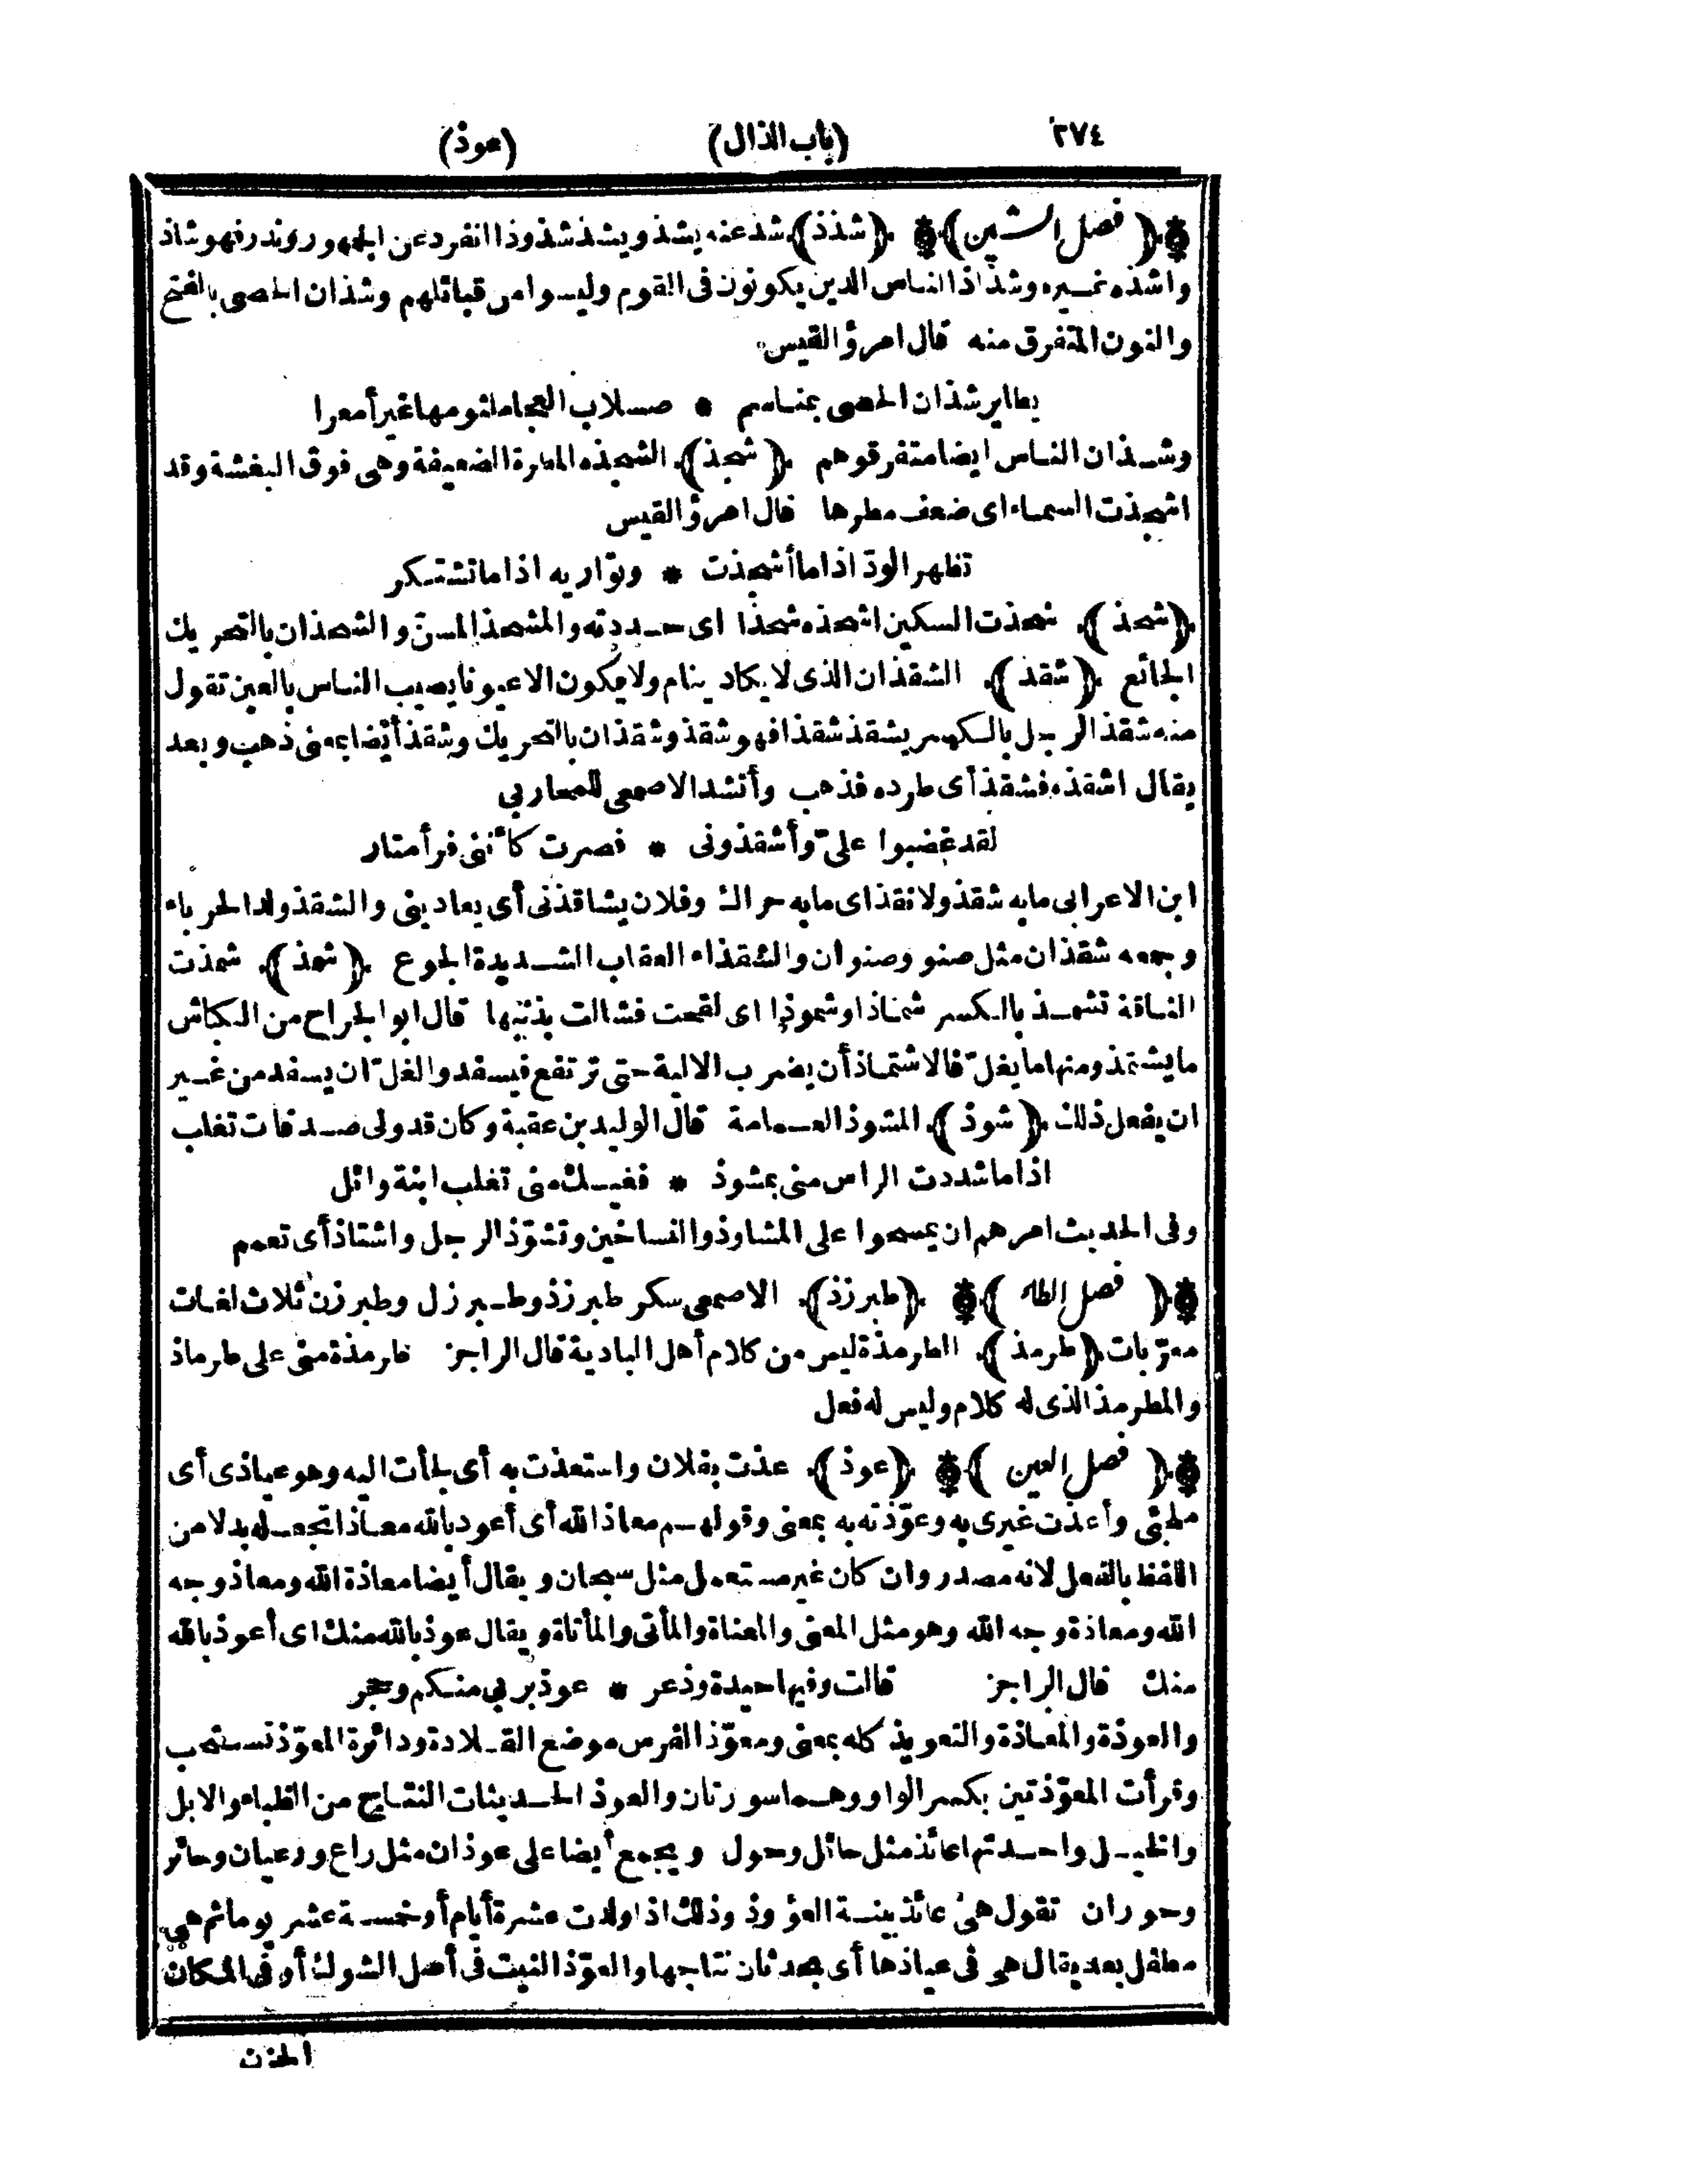 ٢٧٤ (باب الذال) (عوذ)
﴿ فصل الشين ﴾ ﴿ شذذ ﴾ شذ عنه يشذ ويشذ شذوذا انفرد عن الجمهور وندر فهو شاذ
واشذه غيره وشذاذ الناس الذين يكونون فى القوم وليسوا من قبائلهم وشذان الحصى بالفتح
والنون المتفرق منه قال امرؤ القيس
يطاير شذان الحصى بمناسم * صلاب العجا ملثومها غير أمعرا
وشذان الناس ايضا متفرقوهم ﴿ شجذ ﴾ الشجذه المطرة الضعيفة وهى فوق البغشة وقد
اشجذت السماء اى ضعف مطرها قال امرؤ القيس
تظهر الودّ اذا ما أشجذت * وتواريه اذا ما تشتكر
﴿ شحذ ﴾ شحذت السكين اشحذه شحذا اى حددته والمشحذ المسنّ والشحذان بالتحريك
الجائع ﴿ شقذ ﴾ الشقذان الذى لا يكاد ينام ولا يكون الا عيونا يصيب الناس بالعين تقول
منه شقذ الرجل بالكسر يشقذ شقذا فهو شقذ وشقذان بالتحريك وشقذ أيضا بمعنى ذهب وبعد
يقال اشقذه فشقذ أى طرده فذهب وأنشد الاصمعى للمحاربي
لقد غضبوا علىّ وأشقذونى * فصرت كأننى فرأ متار
ابن الاعرابى مابه شقذ ولا نقذ اى مابه حراك وفلان يشاقذنى أى يعادينى والشقذ ولد الحرباء
وجمعه شقذان مثل صنو وصنوان والشقذاء العقاب الشديدة الجوع ﴿ شمذ ﴾ شمذت
الناقة تشمذ بالكسر شماذا وشموذا اى لقحت فشالت بذنبها قال ابو الجراح من الكباش
ما يشتمذ ومنها ما يغلّ فالاشتماذ أن يضرب الالية حتى ترتفع فيسفد والغلّ ان يسفد من غير
ان يفعل ذلك ﴿ شوذ ﴾ المشوذ العمامة قال الوليد بن عقبة وكان قد ولى صدقات تغلب
اذا ما شددت الراس منى بمشوذ * فغيك منى تغلب ابنة وائل
وفى الحديث امرهم ان يمسحوا على المشاوذ والتساخين وتشوّذ الرجل واشتاذ أى تعمم
﴿ فصل الطاء ﴾ ﴿ طبرزذ ﴾ الاصمعى سكر طبرزذ وطبرزل وطبرزن ثلاث لغات
معرّبات ﴿ طرمذ ﴾ الطرمذة ليس من كلام أهل البادية قال الراجز طرمذة منى على طرماذ
والمطرمذ الذى له كلام وليس له فعل
﴿ فصل العين ﴾ ﴿ عوذ ﴾ عذت بفلان واستعذت به أى لجأت اليه وهو عياذى أى
ملجئى وأعذت غيرى به وعوّذته به بمعنى وقولهم معاذ الله أى أعوذ بالله معاذا تجعله بدلا من
اللفظ بالفعل لانه مصدر وان كان غير مستعمل مثل سبحان ويقال أيضا معاذة الله ومعاذ وجه
الله ومعاذة وجه الله وهو مثل المعنى والمعناة والمأتى والمأتاة ويقال عوذ بالله منك اى أعوذ بالله
منك قال الراجز قالت وفيها حيدة وذعر * عوذ بربي منكم وحجر
والعوذة والمعاذة والتعويذ كله بمعنى ومعوّذ الفرس موضع القلادة ودائرة المعوّذ تستحب
وقرأت المعوّذتين بكسر الواو وهما سورتان والعوذ الحديثات النتاج من الظباء والابل
والخيل واحدتها عائذ مثل حائل وحول ويجمع أيضا على عوذان مثل راع ورعيان وحائر
وحوران تقول هى عائذ بينة العؤوذ وذلك اذا ولدت عشرة أيام أو خمسة عشر يوما ثم هى
مطفل بعد يقال هى فى عياذها أى بحدثان نتاجها والعوّذ النبت فى أصل الشوك أو فى المكان
الحزن